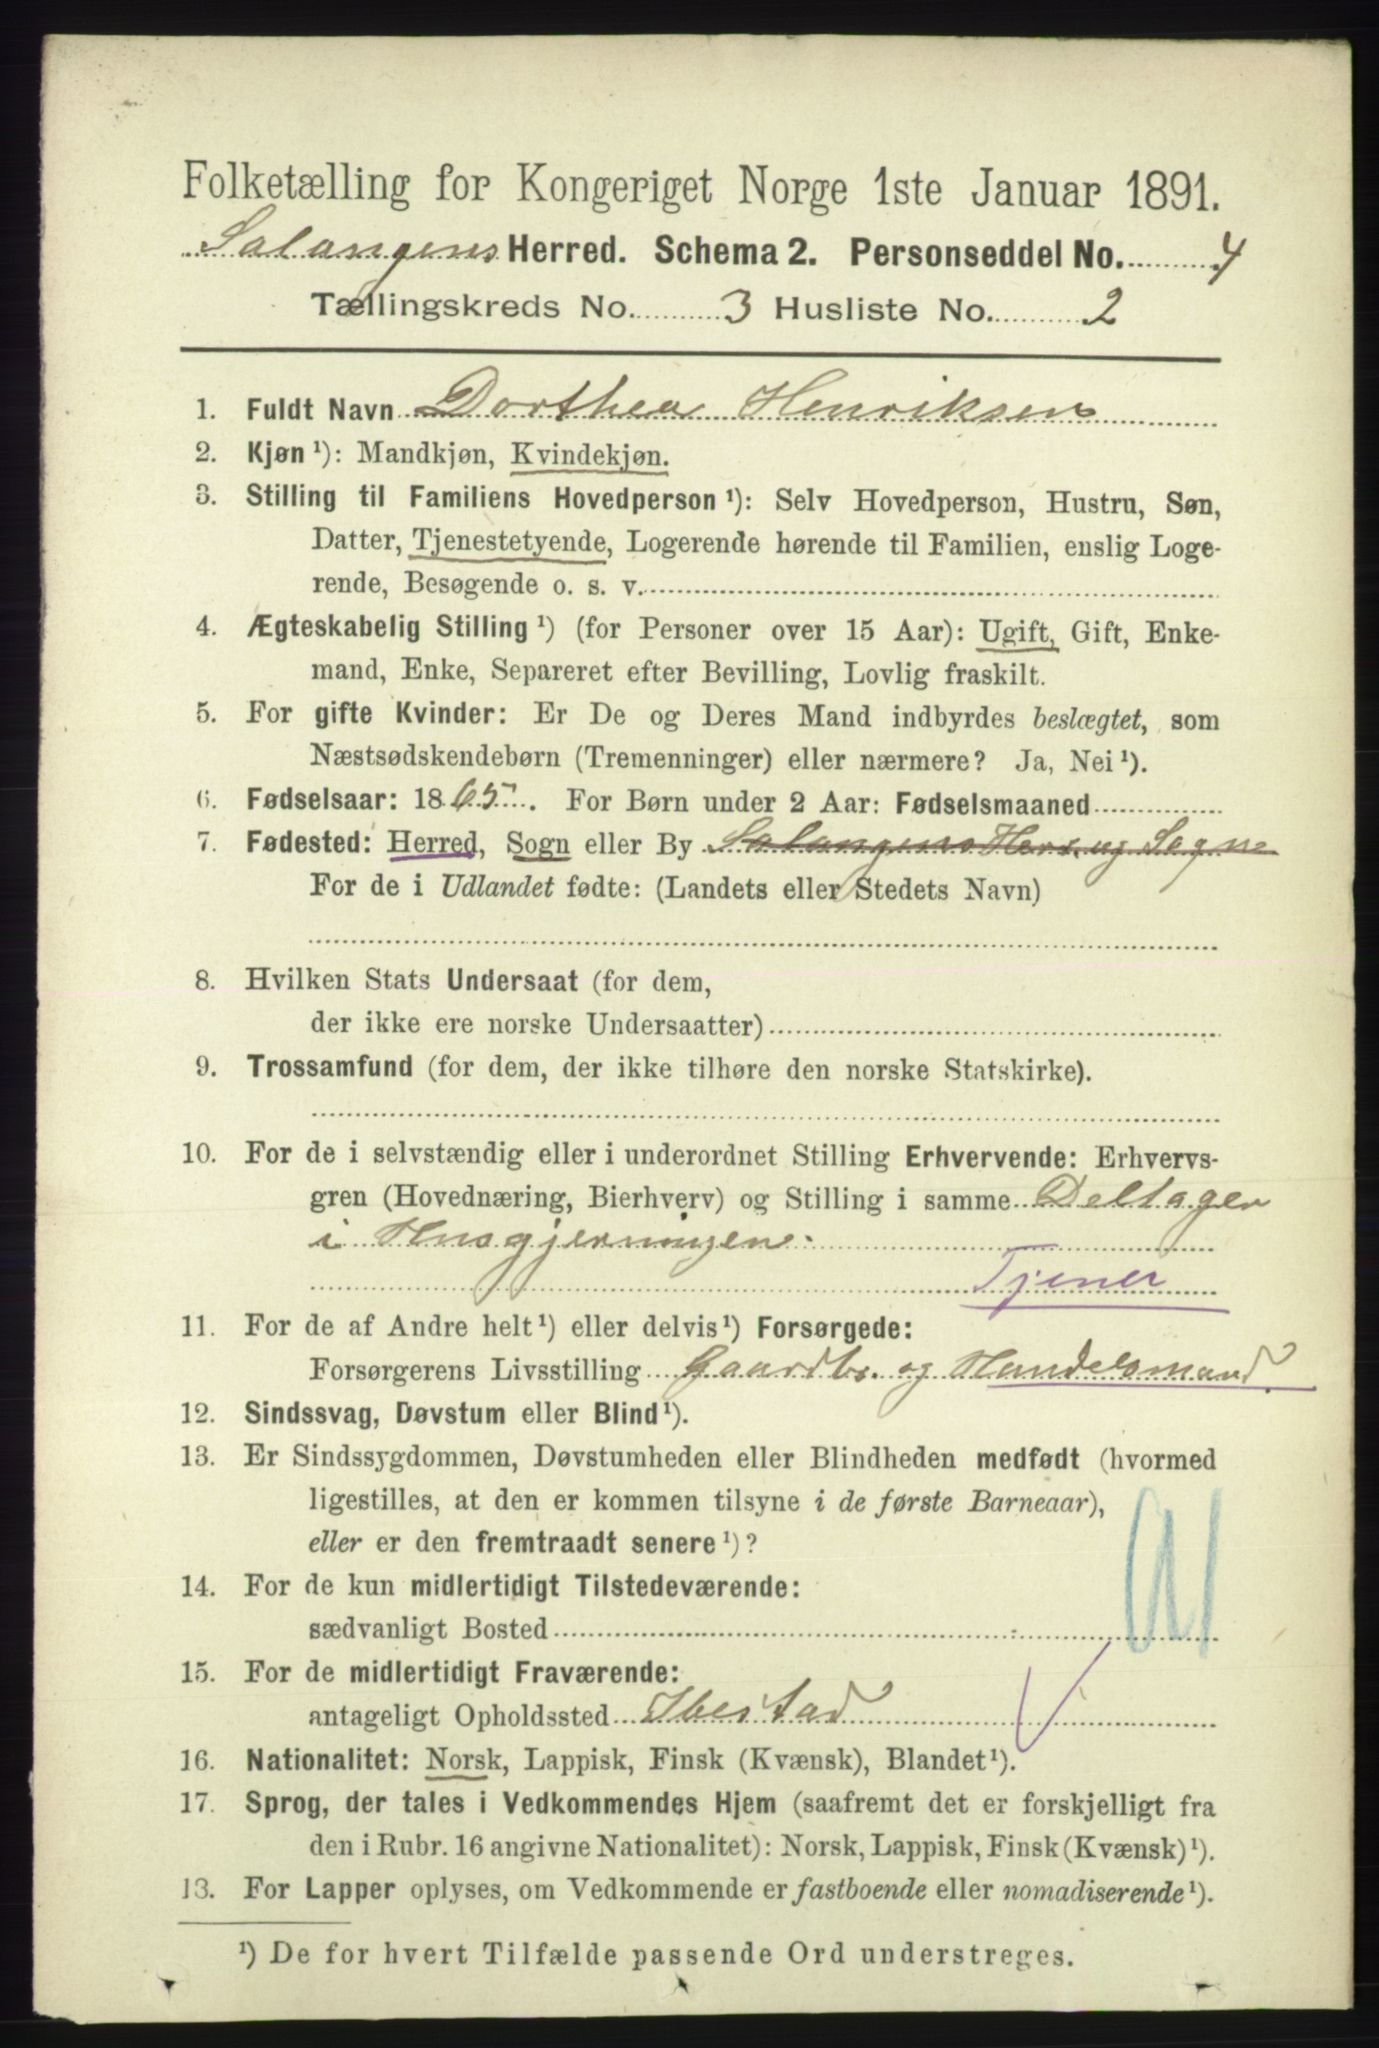 Folketælling for Kongeriget Norge 1ste Januar 1891.
Salangens Herred. Schema 2. Personseddel No. 4
Tællingskreds No. 3 Husliste No. 2
1. Fuldt Navn Dorthea Henriksen
2. Kjøn ¹): Mandkjøn, Kvindekjøn.
3. Stilling til Familiens Hovedperson ¹): Selv Hovedperson, Hustru, Søn,
Datter, Tjenestetyende, Logerende hørende til Familien, enslig Loge-
rende, Besøgende o. s. v.
4. Ægteskabelig Stilling ¹) (for Personer over 15 Aar): Ugift, Gift, Enke-
mand, Enke, Separeret efter Bevilling, Lovlig fraskilt.
5. For gifte Kvinder: Er De og Deres Mand indbyrdes beslægtet, som
Næstsødskendebørn (Tremenninger) eller nærmere? Ja, Nei ¹).
6. Fødselsaar: 1865. For Børn under 2 Aar: Fødselsmaaned
7. Fødested: Herred, Sogn eller By Salangens Her. og Sogn
For de i Udlandet fødte: (Landets eller Stedets Navn)
8. Hvilken Stats Undersaat (for dem,
der ikke ere norske Undersaatter)
9. Trossamfund (for dem, der ikke tilhøre den norske Statskirke).
10. For de i selvstændig eller i underordnet Stilling Erhvervende: Erhvervs-
gren (Hovednæring, Bierhverv) og Stilling i samme Deltager
i Husgjerningen.
Tjener
11. For de af Andre helt ¹) eller delvis ¹) Forsørgede:
Forsørgerens Livsstilling Gaardbr. og Handelsmand.
12. Sindssvag, Døvstum eller Blind ¹).
13. Er Sindssygdommen, Døvstumheden eller Blindheden medfødt (hvormed
ligestilles, at den er kommen tilsyne i de første Barneaar),
eller er den fremtraadt senere ¹)?
14. For de kun midlertidigt Tilstedeværende:
sædvanligt Bosted
15. For de midlertidigt Fraværende:
antageligt Opholdssted Ibestad
16. Nationalitet: Norsk, Lappisk, Finsk (Kvænsk), Blandet ¹).
17. Sprog, der tales i Vedkommendes Hjem (saafremt det er forskjelligt fra
den i Rubr. 16 angivne Nationalitet): Norsk, Lappisk, Finsk (Kvænsk) ¹).
13. For Lapper oplyses, om Vedkommende er fastboende eller nomadiserende ¹).
¹) De for hvert Tilfælde passende Ord understreges.